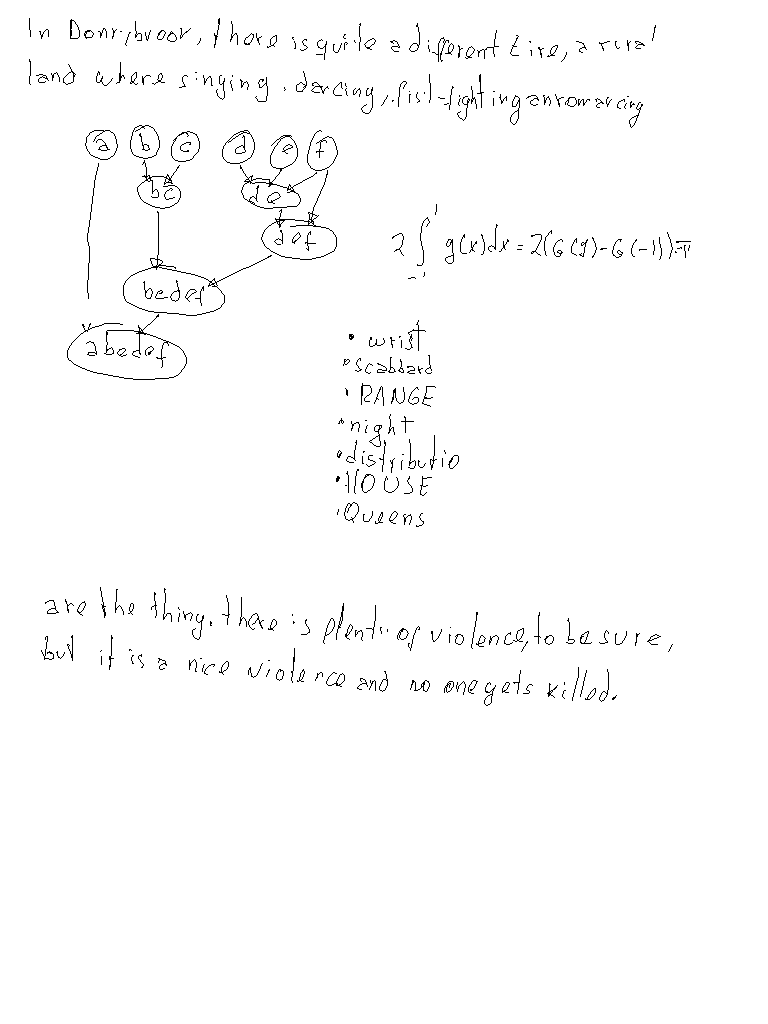 In Donnybroor, there is quite a different tire, a rural
land where singing, dancing, fist-fighting an romancing
a b c d e f
bc de
def
bcdef
abcdef
2 ∫_{-1}^{1} g(x)dx = 2(G(1)-G(-1)) = π
• wrist
• scabbard
• RANGE
• night
• distributio
• HOUSE
• Queens
are the thing. there is plenty of violence, to be sure,
but it is a nice violence and no one gets killed.